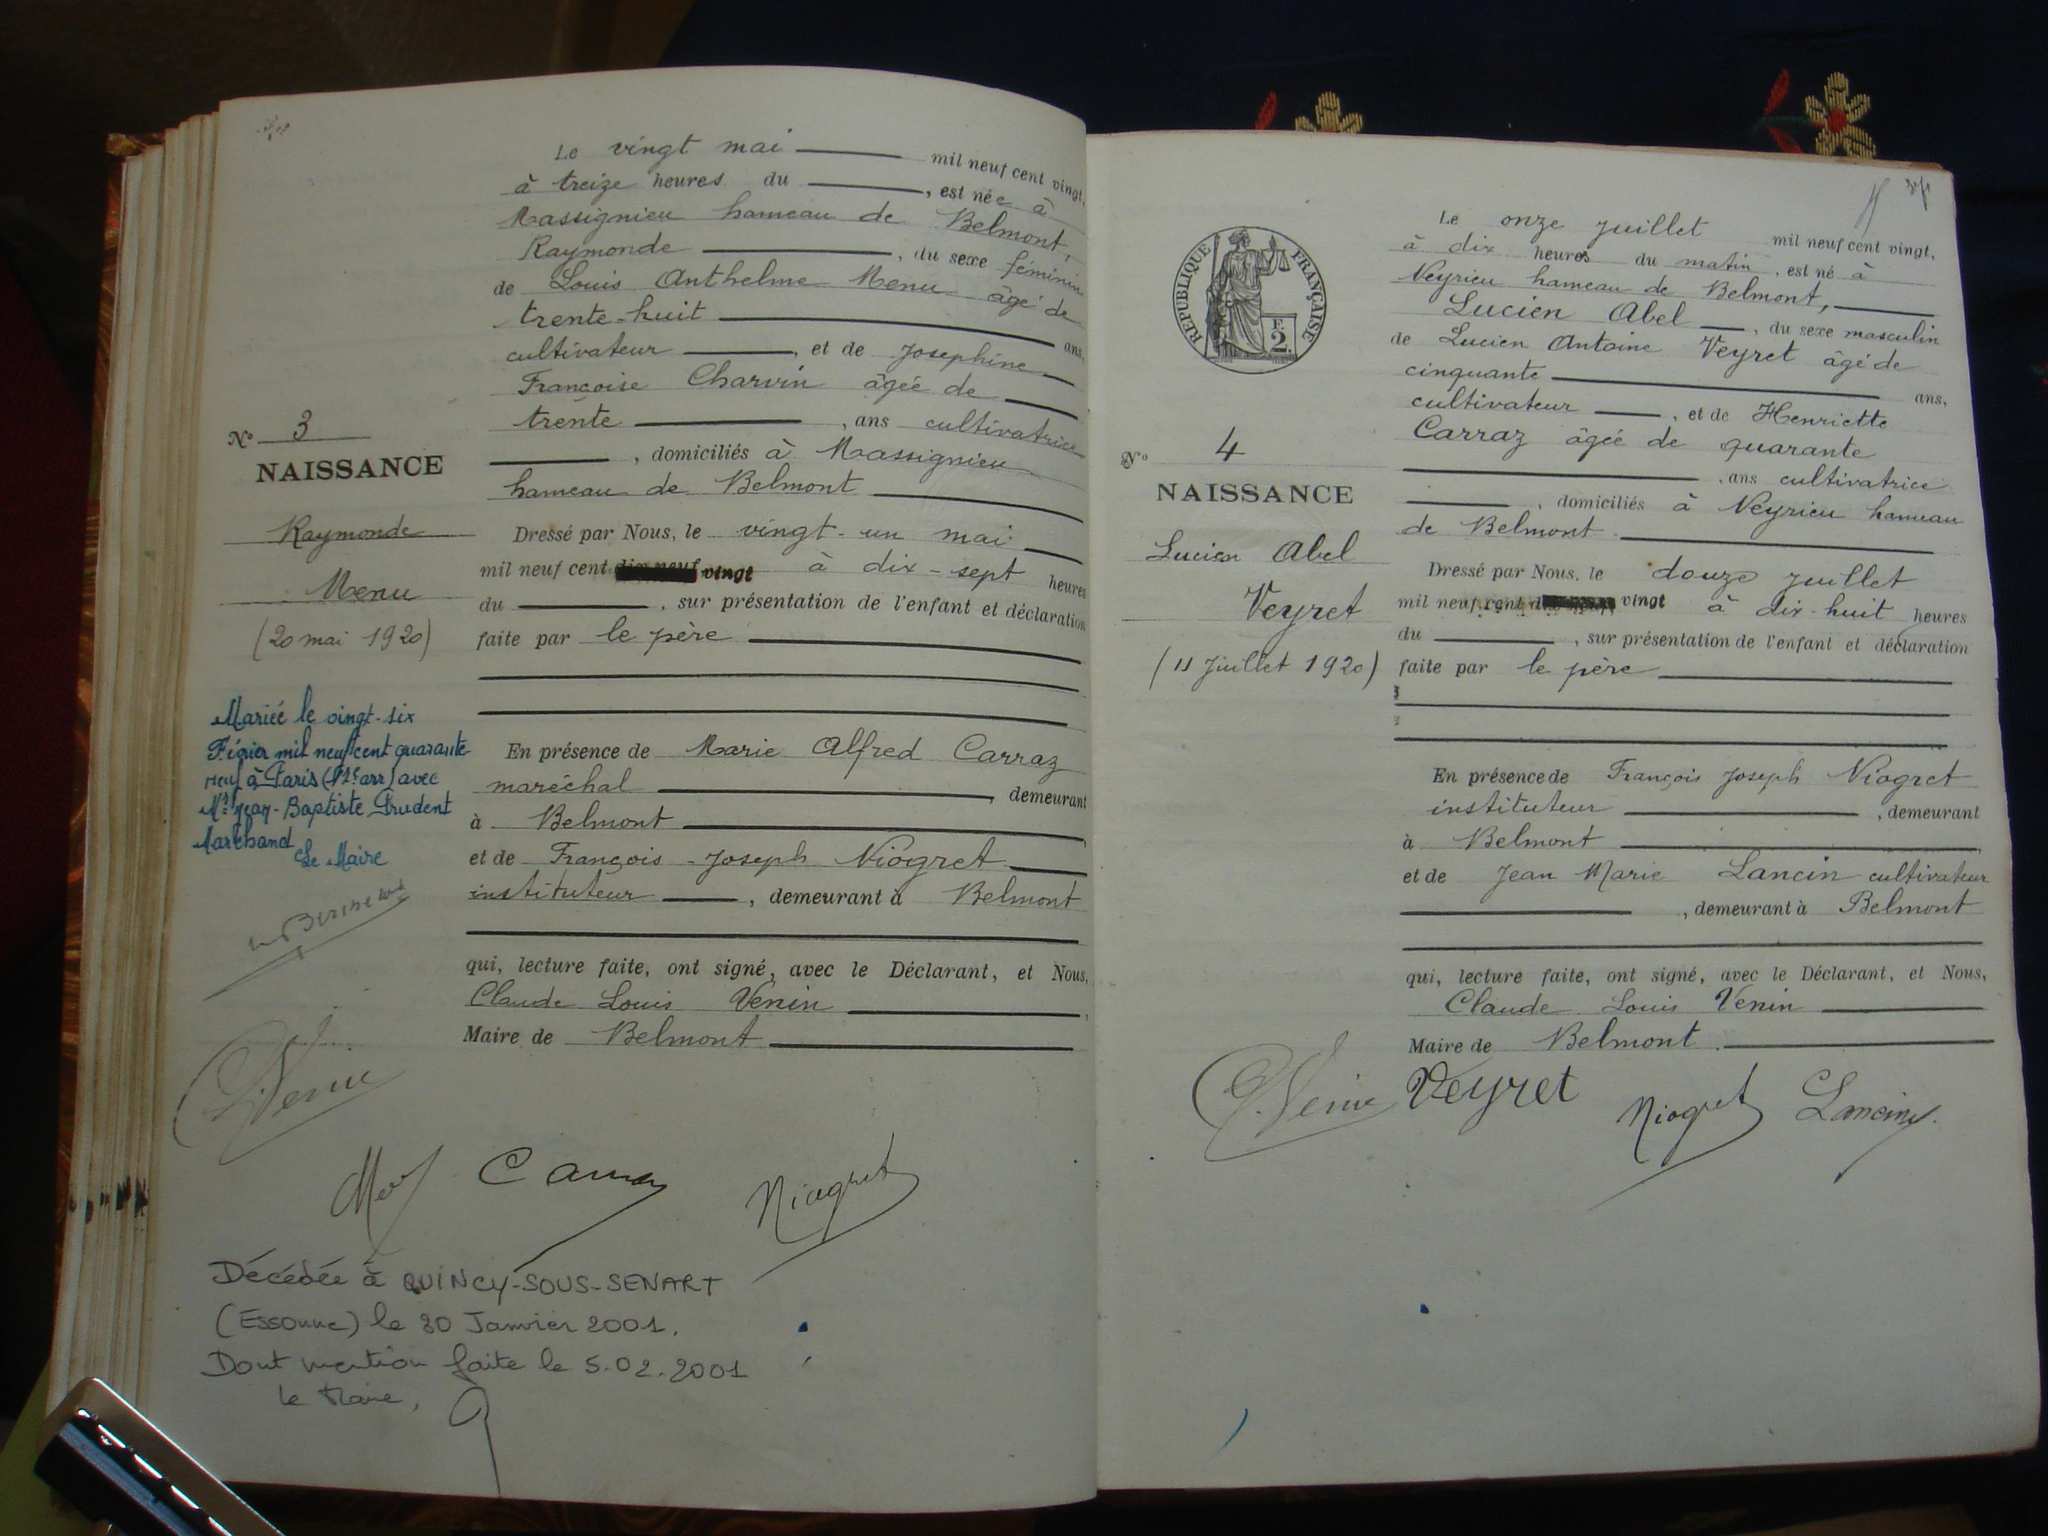 Le vingt mai mil neuf cent vingt,
à treize heures du , est née à
Massignieu hameau de Belmont,
Raymonde , du sexe féminin
de Louis Anthelme Menu âgé de
trente-huit ans,
cultivateur , et de Joséphine
Françoise Charvin âgée de
trente , ans cultivatrice
, domiciliés à Massignieu
hameau de Belmont
Dressé par Nous, le vingt-un mai
mil neuf cent vingt à dix-sept heures
du , sur présentation de l'enfant et déclaration
faite par le père
En présence de Marie Alfred Carraz
maréchal , demeurant
à Belmont
et de François-Joseph Niogret
instituteur , demeurant à Belmont
qui, lecture faite, ont signé, avec le Déclarant, et Nous,
Claude Louis Venin ,
Maire de Belmont
No 3
NAISSANCE
Raymonde
Menu
(20 mai 1920)
Mariée le vingt-six
Février mil neuf cent quarante
neuf à Paris avec
Mr Jean-Baptiste Prudent
Marchand
Le Maire
C. Venin
Niogret
Décédée à QUINCY-SOUS-SENART
(Essonne) le 30 Janvier 2001.
Dont mention faite le 5.02.2001
le Maire,
RÉPUBLIQUE FRANÇAISE
F.
2.
Le onze juillet mil neuf cent vingt,
à dix heures du matin , est né à
Veyrieu hameau de Belmont,
Lucien Abel , du sexe masculin
de Lucien Antoine Veyret âgé de
cinquante ans,
cultivateur , et de Henriette
Carraz âgée de quarante
, ans cultivatrice
, domiciliés à Veyrieu hameau
de Belmont
Dressé par Nous, le douze juillet
mil neuf cent vingt à dix-huit heures
du , sur présentation de l'enfant et déclaration
faite par le père
En présence de François Joseph Niogret
instituteur , demeurant
à Belmont
et de Jean Marie Lancin cultivateur
, demeurant à Belmont
qui, lecture faite, ont signé, avec le Déclarant, et Nous,
Claude Louis Venin
Maire de Belmont
No 4
NAISSANCE
Lucien Abel
Veyret
(11 Juillet 1920)
C. Venin Veyret Niogret Lancin